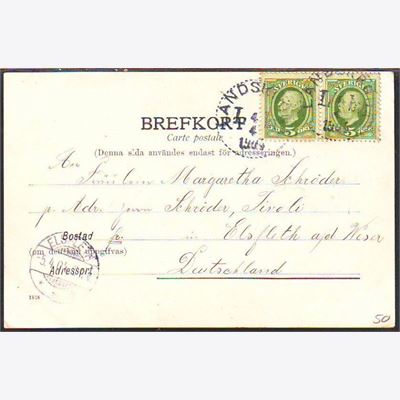 LANDSKR
LANDSKR
SVERIGE
SVERIGE
5 5
BREFKORT
Carte postale
(Denna sida användes endast för adresseringen.)
An
Fräulein Margaretha Schröder
p. Adr. Schröder, Tivoli
Bostad
Elsfleth a/d Weser
(om densamma uppgifvas)
Adressort
Deutschland
ELSFLETH
1818
50